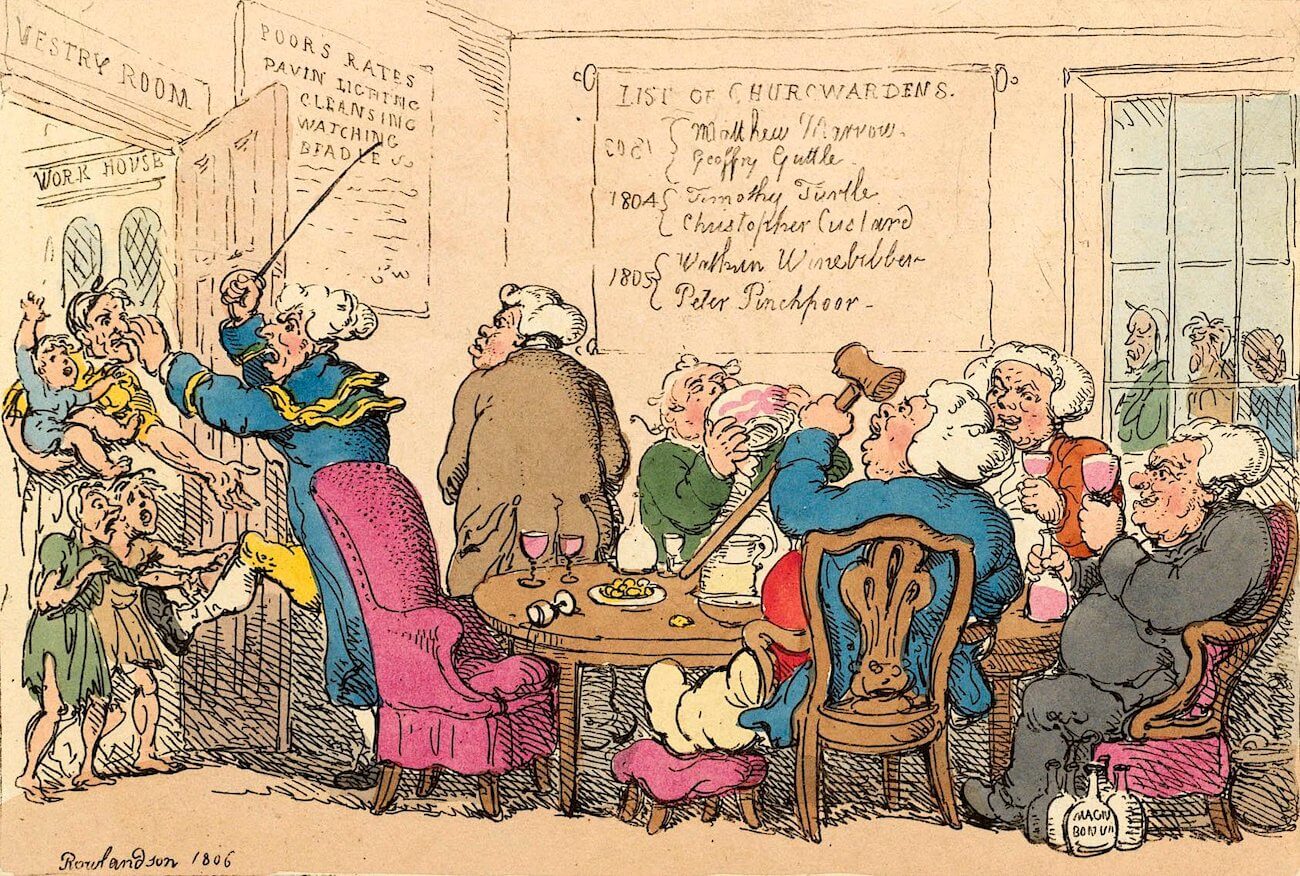 VESTRY ROOM
WORK HOUSE
POORS RATES
PAVIN LIGHTING
CLEANSING
WATCHING
BEADLE
LIST OF CHURCWARDENS.
1803 Matthew Marrow.
Geoffry Guttle
1804 Timothy Turtle
Christopher Custard
1805 Watkin Winebibber
Peter Pinchpoor
MAGNU
BONUM
Rowlandson 1806